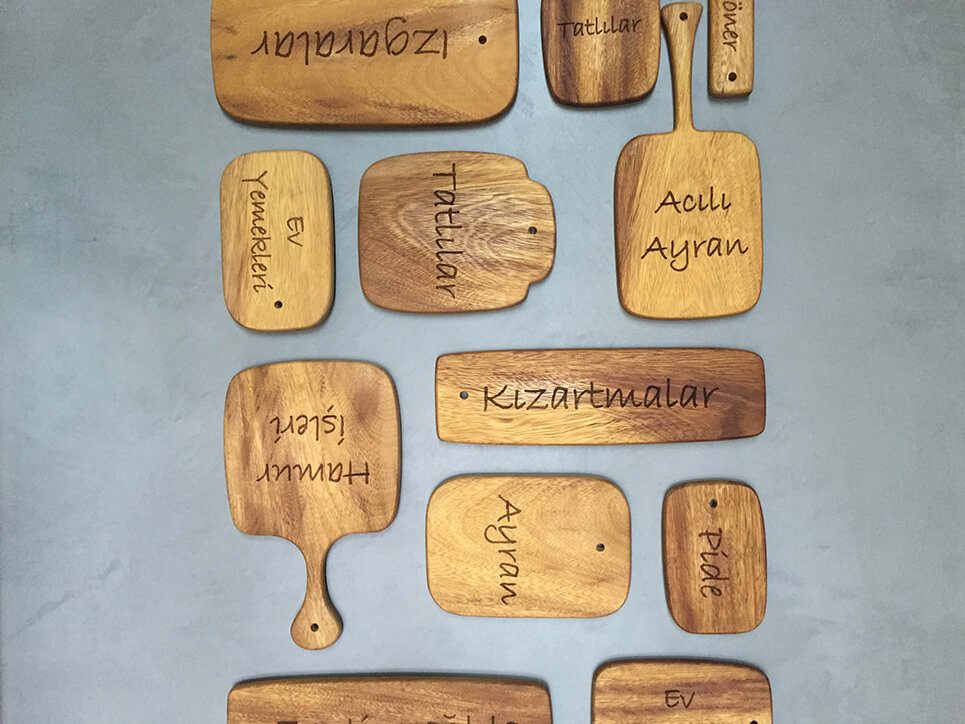 Izgaralar
Tatlılar
öner
Ev
Yemekleri
Tatlılar
Acılı
Ayran
Kızartmalar
Hamur
işleri
Ayran
Pide
Ev